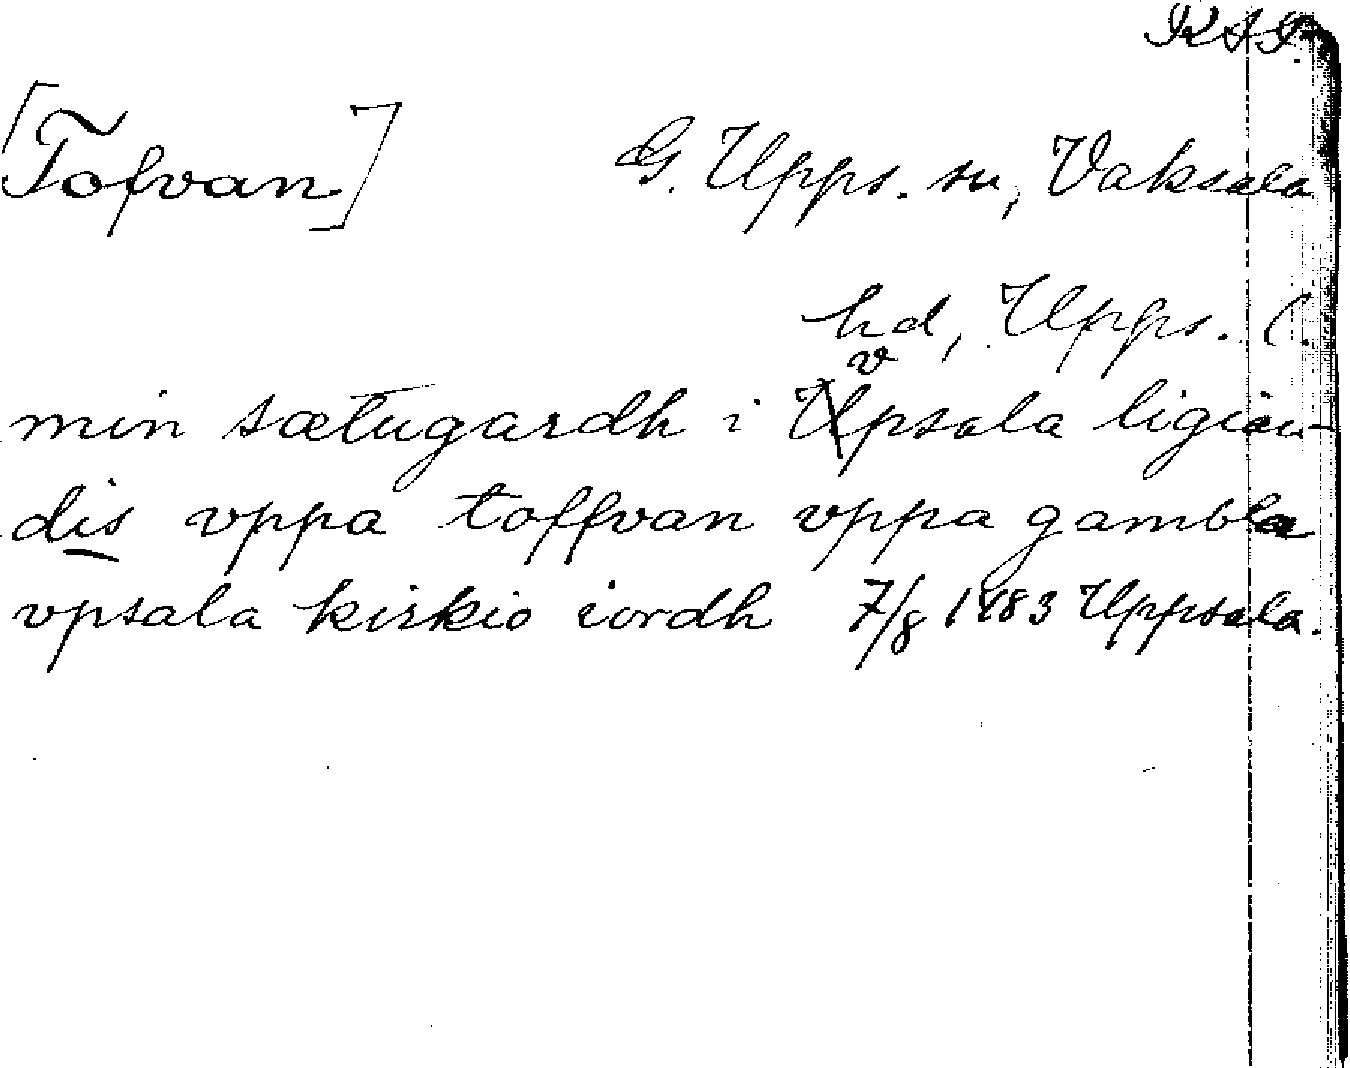 [Tofvan]
G. Upps. sn, Vaksala
hd, Upps. l.
min sætugardh i vpsala ligian-
dis vppa toffvan vppa gambla
vpsala kirkio iordh 7/8 1483 Uppsala.